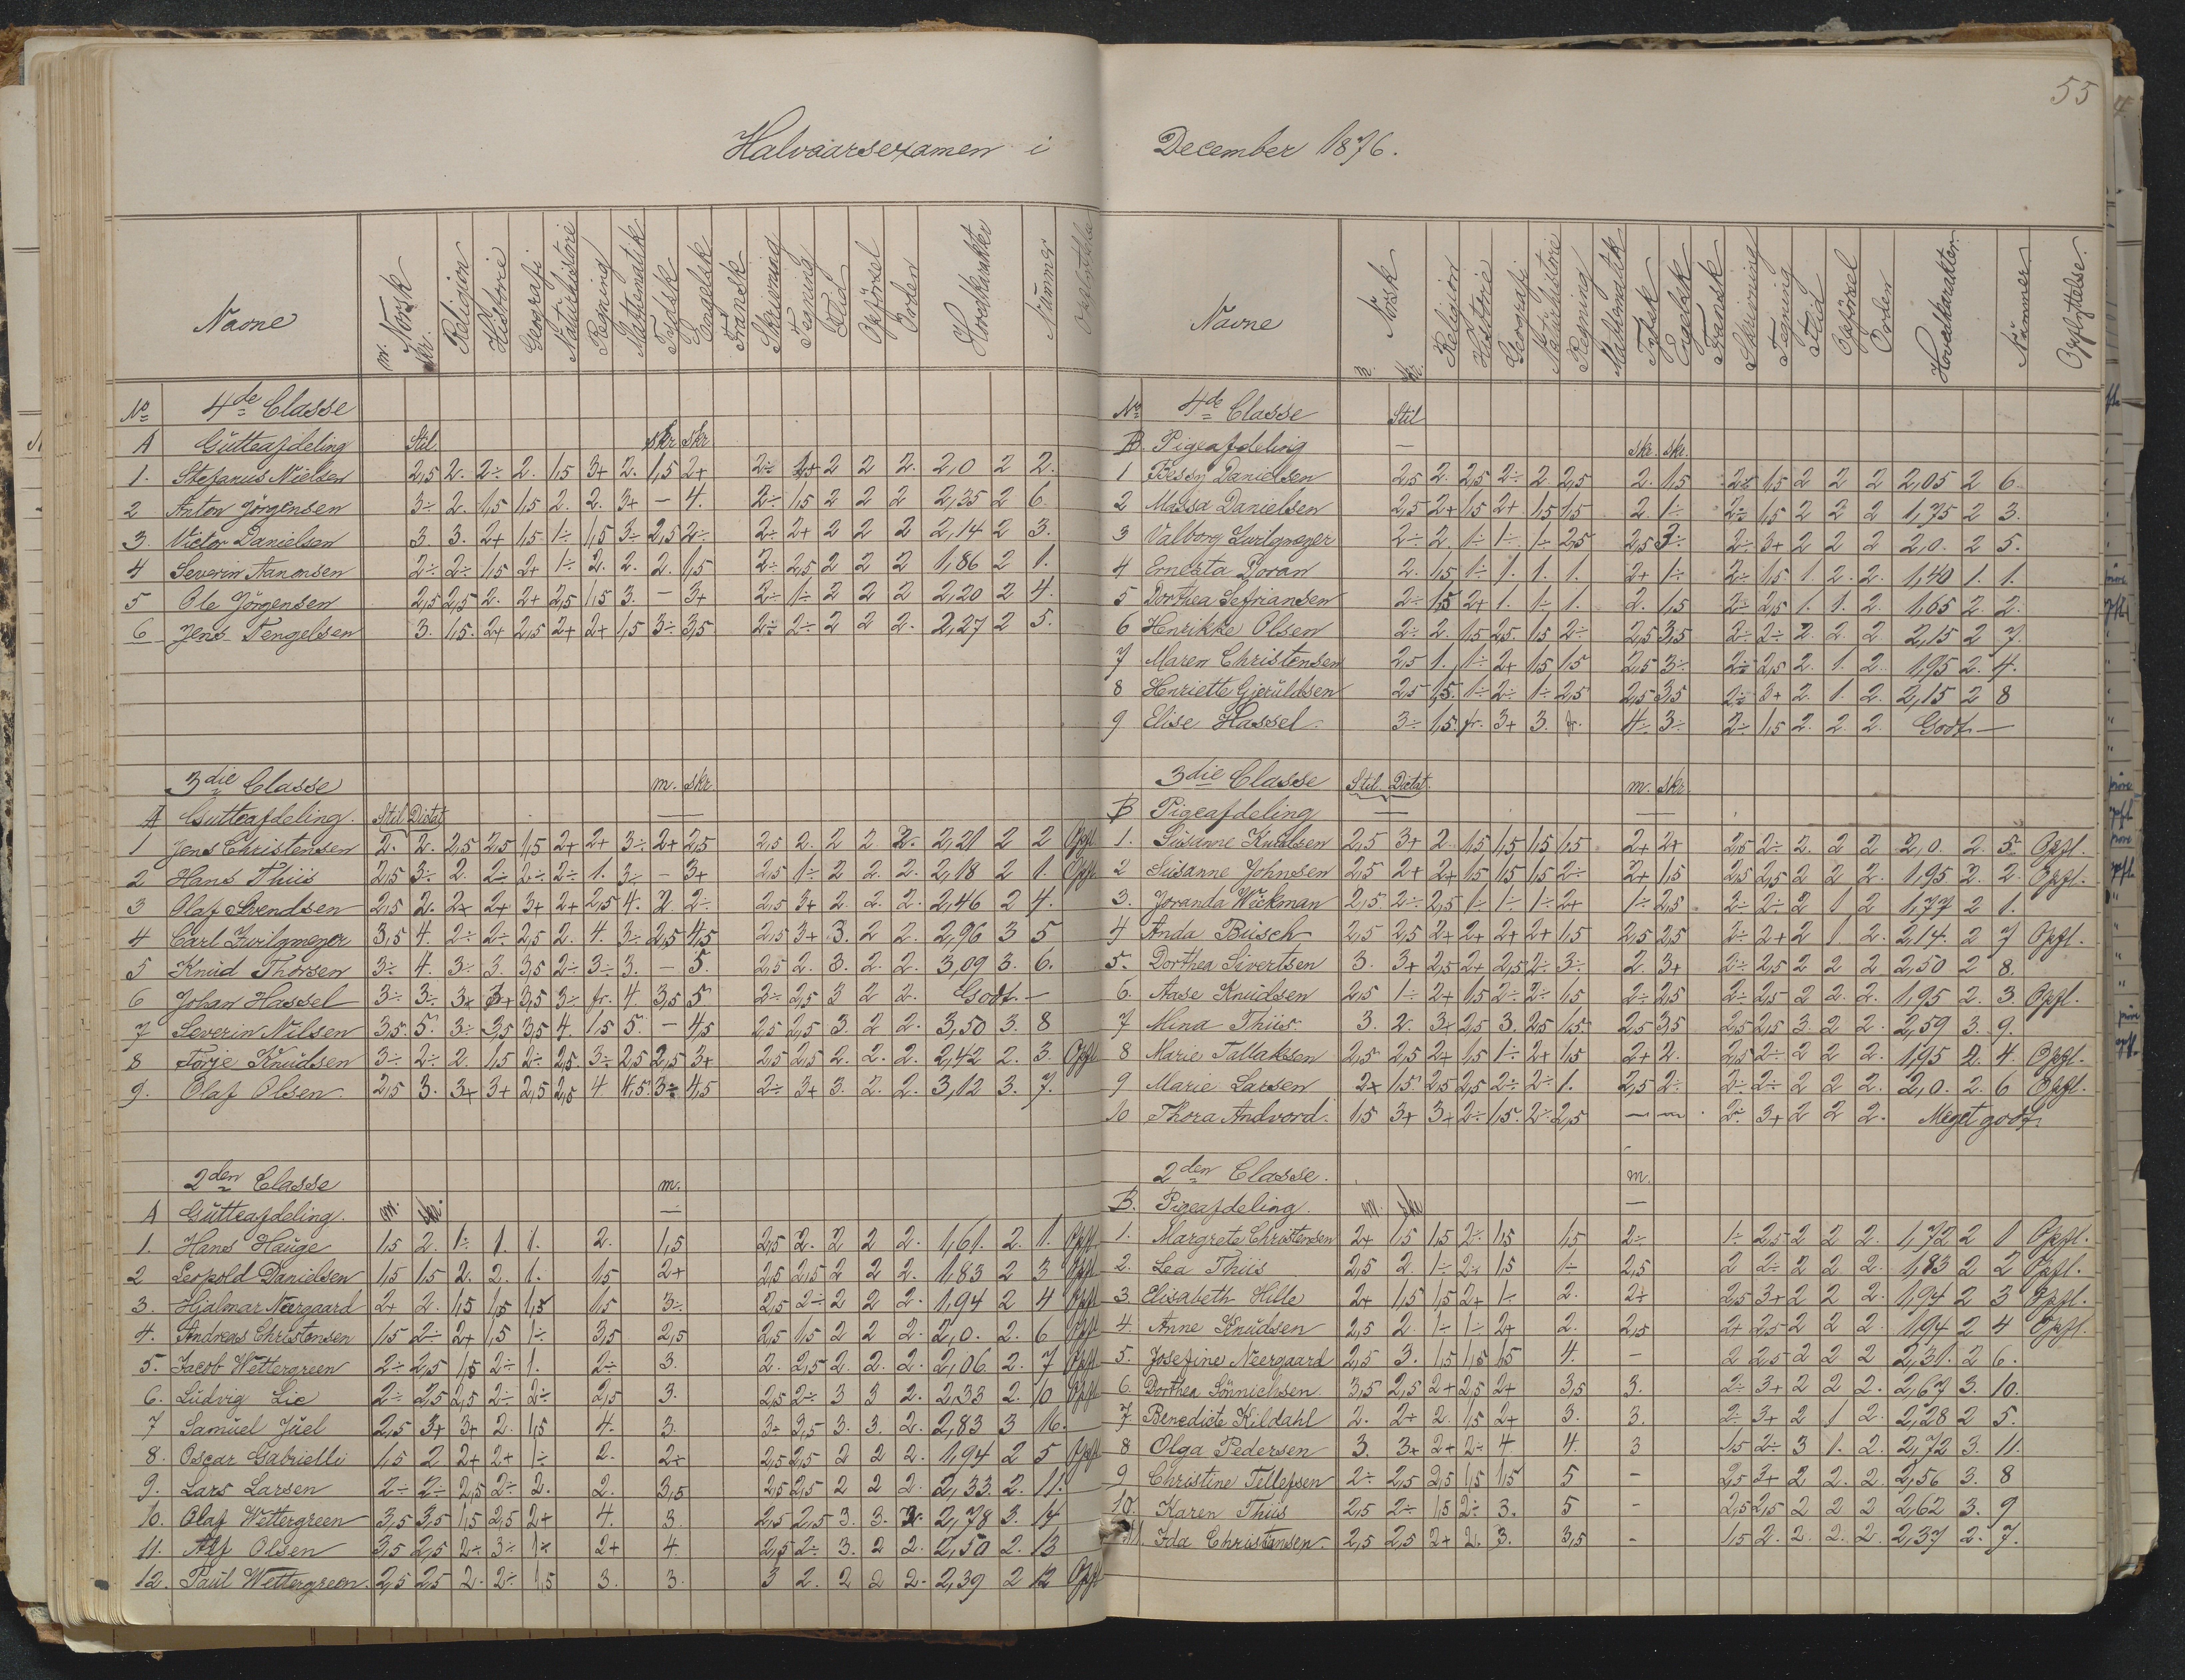 55
Halvaarsexamen i December 1876.
Navne m. Norsk skr. Religion Historie Geografi Naturhistorie Regning Mathematik Tydsk Engelsk Fransk Skrivning Tegning Flid Opförsel Orden Hovedkarakter Nummer
No 4de Classe
A Gutteafdeling Stil skr skr
1. Stefanus Nielsen 2,5 2. 2÷ 2. 1,5 3+ 2. 1,5 2+ 2÷ 1+ 2 2 2. 2,0 2 2.
2 Anton Jörgensen 3÷ 2. 1,5 1,5 2. 2. 3+ — 4. 2÷ 1,5 2 2 2 2,35 2 6.
3. Victor Danielsen 3 3. 2+ 1,5 1÷ 1,5 3÷ 2,5 2÷ 2÷ 2+ 2 2 2 2,14 2 3.
4 Severin Aanonsen 2÷ 2÷ 1,5 2+ 1÷ 2. 2. 2. 1,5 2÷ 2,5 2 2 2 1,86 2 1.
5 Ole Jörgensen 2,5 2,5 2. 2+ 2,5 1,5 3. — 3+ 2÷ 1÷ 2 2 2 2,20 2 4.
6 Jens Tengelsen 3. 1,5. 2+ 2,5 2+ 2+ 1,5 3÷ 3,5 2÷ 2÷ 2 2 2. 2,27 2 5.
3die Classe m. skr
A Gutteafdeling. Stil Dictat —
1 Jens Christensen 2. 2. 2,5 2,5 1,5 2+ 2+ 3÷ 2+ 2,5 2,5 2. 2 2 2. 2,21 2 2 Opfl
2 Hans Thiis 2,5 3÷ 2. 2÷ 2÷ 2÷ 1. 3÷ — 3+ 2,5 1÷ 2 2. 2. 2,18 2 1. Opfl
3 Olaf Svendsen 2,5 2. 2+ 2+ 3+ 2+ 2,5 4. 2. 2÷ 2,5 3+ 2. 2. 2. 2,46 2 4.
4 Carl Zwilgmeyer 3,5 4. 2÷ 2÷ 2,5 2. 4. 3÷ 2,5 4,5 2,5 3+ 3. 2 2. 2,96 3 5
5 Knud Thorsen 3÷ 4. 3÷ 3. 3,5 2÷ 3÷ 3. — 5. 2,5 2. 3. 2. 2. 3,09 3. 6.
6 Johan Hassel 3÷ 3÷ 3+ 3+ 3,5 3÷ fr. 4. 3,5 5 2÷ 2,5 3 2 2. Godt. —
7 Severin Nilsen 3,5. 5. 3÷ 3,5 3,5 4. 1,5 5. — 4,5 2,5 2,5 3. 2 2. 3,50 3. 8
8 Torje Knudsen 3÷ 2÷ 2. 1,5 2÷ 2,5. 3÷ 2,5 2,5 3+ 2,5 2,5 2. 2. 2. 2,42 2. 3. Opfl
9. Olaf Olsen. 2,5 3. 3+ 3+ 2,5 2,5 4. 4,5. 3÷ 4,5 2÷ 3+ 3. 2. 2. 3,12 3. 7.
2den Classe m.
A Gutteafdeling. m. skr. —
1. Hans Hauge 1,5 2. 1÷ 1. 1. 2. 1,5 2,5 2. 2 2 2. 1,61. 2. 1. Opfl.
2 Leopold Danielsen 1,5 1,5 2. 2. 1. 1,5 2+ 2,5 2,5 2 2 2. 1,83 2 3 Opfl
3. Hjalmar Neergaard 2+ 2. 1,5 1,5 1,5 1,5 3÷ 2,5 2÷ 2 2 2. 1,94 2 4 Opfl
4. Andreas Christensen 1,5 2÷ 2+ 1,5 1÷ 3,5 2,5 2,5 1,5 2 2 2. 2,0. 2. 6 Opfl
5. Jacob Wettergreen 2÷ 2,5 1,5 2÷ 1. 2÷ 3. 2. 2,5 2. 2. 2. 2,06. 2. 7 Opfl
6. Ludvig Lie 2÷ 2,5 2,5 2÷ 2÷ 2,5 3. 2,5 2÷ 3 3 2. 2,33 2. 10 Opfl
7 Samuel Juel 2,5 3+ 3+ 2. 1,5 4. 3. 3÷ 3,5 3. 3. 2. 2,83 3 16.
8. Oscar Gabrielli 1,5 2 2+ 2+ 1÷ 2. 2+ 2,5 2,5 2 2 2. 1,94 2 5 Opfl
9. Lars Larsen 2÷ 2÷ 2,5 2÷ 2. 2. 3,5 2,5 2,5 2 2 2. 2,33 2. 11.
10. Olaf Wettergreen 3,5 3,5 1,5 2,5 2+ 4. 3. 2,5 2,5 3. 3. 2. 2,78 3. 14
11. Alf Olsen 3,5 2,5 2÷ 3÷ 1÷ 2+ 4. 2,5 2÷ 3. 2 2. 2,50 2. 13
12. Paul Wettergreen. 2,5 2,5 2. 2÷ 1,5 3. 3. 3 2. 2 2 2. 2,39 2 12 Opfl
Navne m. Norsk skr. Religion Historie Geografi Naturhistorie Regning Mathematik Tydsk Engelsk Fransk Skrivning Tegning Flid Opförsel Orden Hovedkarakter. Nummer. Opflyttelse.
No 4de Classe Stil
B. Pigeafdeling — skr. skr.
1 Bessy Danielsen 2,5 2. 2,5 2÷ 2 2,5 2. 1,5 2÷ 1,5 2 2 2 2,05 2 6
2 Massa Danielsen 2,5 2+ 1,5 2+ 1,5 1,5 2. 1÷ 2÷ 1,5 2 2 2 1,75 2 3.
3 Valborg Zwilgmeyer 2÷ 2 1÷ 1÷ 1÷ 2,5 2,5 3÷ 2÷ 3+ 2 2 2 2,0. 2 5.
4 Ernesta Doran 2. 1,5 1÷ 1. 1. 1. 2+ 1÷ 2÷ 1,5 1. 2. 2. 1,40 1. 1.
5 Dorthea Sefriansen 2÷ 1,5 2+ 1. 1÷ 1. 2. 1,5 2÷ 2,5 1. 1. 2. 1,65 2. 2.
6 Henrikke Olsen 2÷ 2. 1,5 2,5. 1,5 2÷ 2,5 3,5 2÷ 2÷ 2. 2. 2 2,15 2 7.
7 Maren Christensen 2,5 1. 1÷ 2+ 1,5 1,5 2,5 3÷ 2÷ 2,5 2. 1. 2. 1,95 2. 4.
8 Henriette Gjeruldsen 2,5 1,5. 1÷ 2÷ 1÷ 2,5 2,5 3,5 2÷ 3+ 2. 1. 2. 2,15 2 8
9 Elise Hassel. 3÷ 1,5. fr. 3+ 3. fr. 4÷ 3÷ 2÷ 1,5 2. 2. 2. Godt. —
3die Classe Stil Dictat m. skr
B Pigeafdeling — —
1. Susanne Knudsen 2,5 3+ 2. 1,5 1,5 1,5 1,5 2+ 2+ 2,5 2÷ 2. 2 2 2,0. 2. 5. Opfl.
2 Susanne Johnsen 2,5 2+ 2+ 1,5 1,5 1,5 2÷ 2+ 1,5 2,5 2,5 2 2. 2. 1,95 2. 2. Opfl.
3. Joranda Wickman 2,5 2÷ 2,5 1÷ 1÷ 1÷ 2+ 1÷ 2,5 2÷ 2÷ 2 1 2 1,77 2 1.
4 Anda Busch 2,5 2,5 2+ 2+ 2+ 2+ 1,5 2,5 2,5 2÷ 2+ 2 1. 2. 2,14. 2 7 Opfl.
5. Dorthea Sivertsen 3. 3+ 2,5 2+ 2,5 2÷ 3÷ 2. 3+ 2÷ 2,5 2 2 2 2,50 2 8.
6. Aase Knudsen 2,5 1÷ 2+ 1,5 2÷ 2÷ 1,5 2÷ 2,5 2÷ 2,5 2 2. 2. 1,95 2. 3. Opfl.
7 Mina Thiis. 3. 2. 3+ 2,5 3. 2,5 1,5. 2,5 3,5 2,5 2,5 3. 2 2. 2,59 3. 9.
8 Marie Tallaksen 2,5 2,5 2+ 1,5 1÷ 2+ 1,5 2+ 2. 2,5 2÷ 2 2 2. 1,95 2. 4. Opfl.
9 Marie Larsen 2+ 1,5 2,5 2,5 2÷ 2÷ 1. 2,5 2÷ 2÷ 2÷ 2 2. 2. 2,0. 2. 6 Opfl.
10 Thora Andvord. 1,5 3+ 3+ 2÷ 1,5. 2÷ 2,5 — — 2÷ 3+ 2 2 2. Meget godt.
2den Classe. m.
B. Pigeafdeling. m. skr —
1. Margrete Christensen 2+ 1,5 1,5 2÷ 1,5 1,5 2÷ 1÷ 2,5 2 2 2. 1,72 2 1 Opfl.
2. Lea Thiis 2,5 2. 1÷ 2÷ 1,5 1÷ 2,5 2 2÷ 2 2. 2. 1,83 2 2 Opfl.
3. Elisabeth Hille 2+ 1,5 1,5 2+ 1÷ 2. 2+ 2,5 3+ 2 2 2. 1,94 2 3 Opfl.
4. Anne Knudsen 2,5 2. 1÷ 1÷ 2+ 2. 2,5 2+ 2,5 2 2 2. 1,94 2 4 Opfl.
5. Josefine Neergaard 2,5 3. 1,5 1,5 1,5 4. — 2 2,5 2 2 2 2,31. 2 6.
6. Dorthea Sönnichsen 3,5 2,5 2+ 2,5 2+ 3,5 3. 2÷ 3+ 2 2 2. 2,67 3. 10.
7. Benedicte Kildahl 2. 2+ 2. 1,5 2+ 3. 3. 2÷ 3+ 2 1 2. 2,28 2 5.
8 Olga Pedersen 3. 3+ 2+ 2÷ 4. 4. 3 1,5 2÷ 3 1. 2. 2,72 3. 11.
9 Christine Tellefsen 2÷ 2,5 2,5 1,5 1,5 5 — 2,5 3+ 2 2. 2. 2,56 3. 8
10. Karen Thiis 2,5 2÷ 1,5 2÷ 3. 5 — 2,5 2,5 2 2 2 2,62 3. 9
11. Ida Christensen. 2,5 2,5 2+ 2. 3. 3,5 — 1,5 2. 2. 2. 2. 2,37 2. 7.